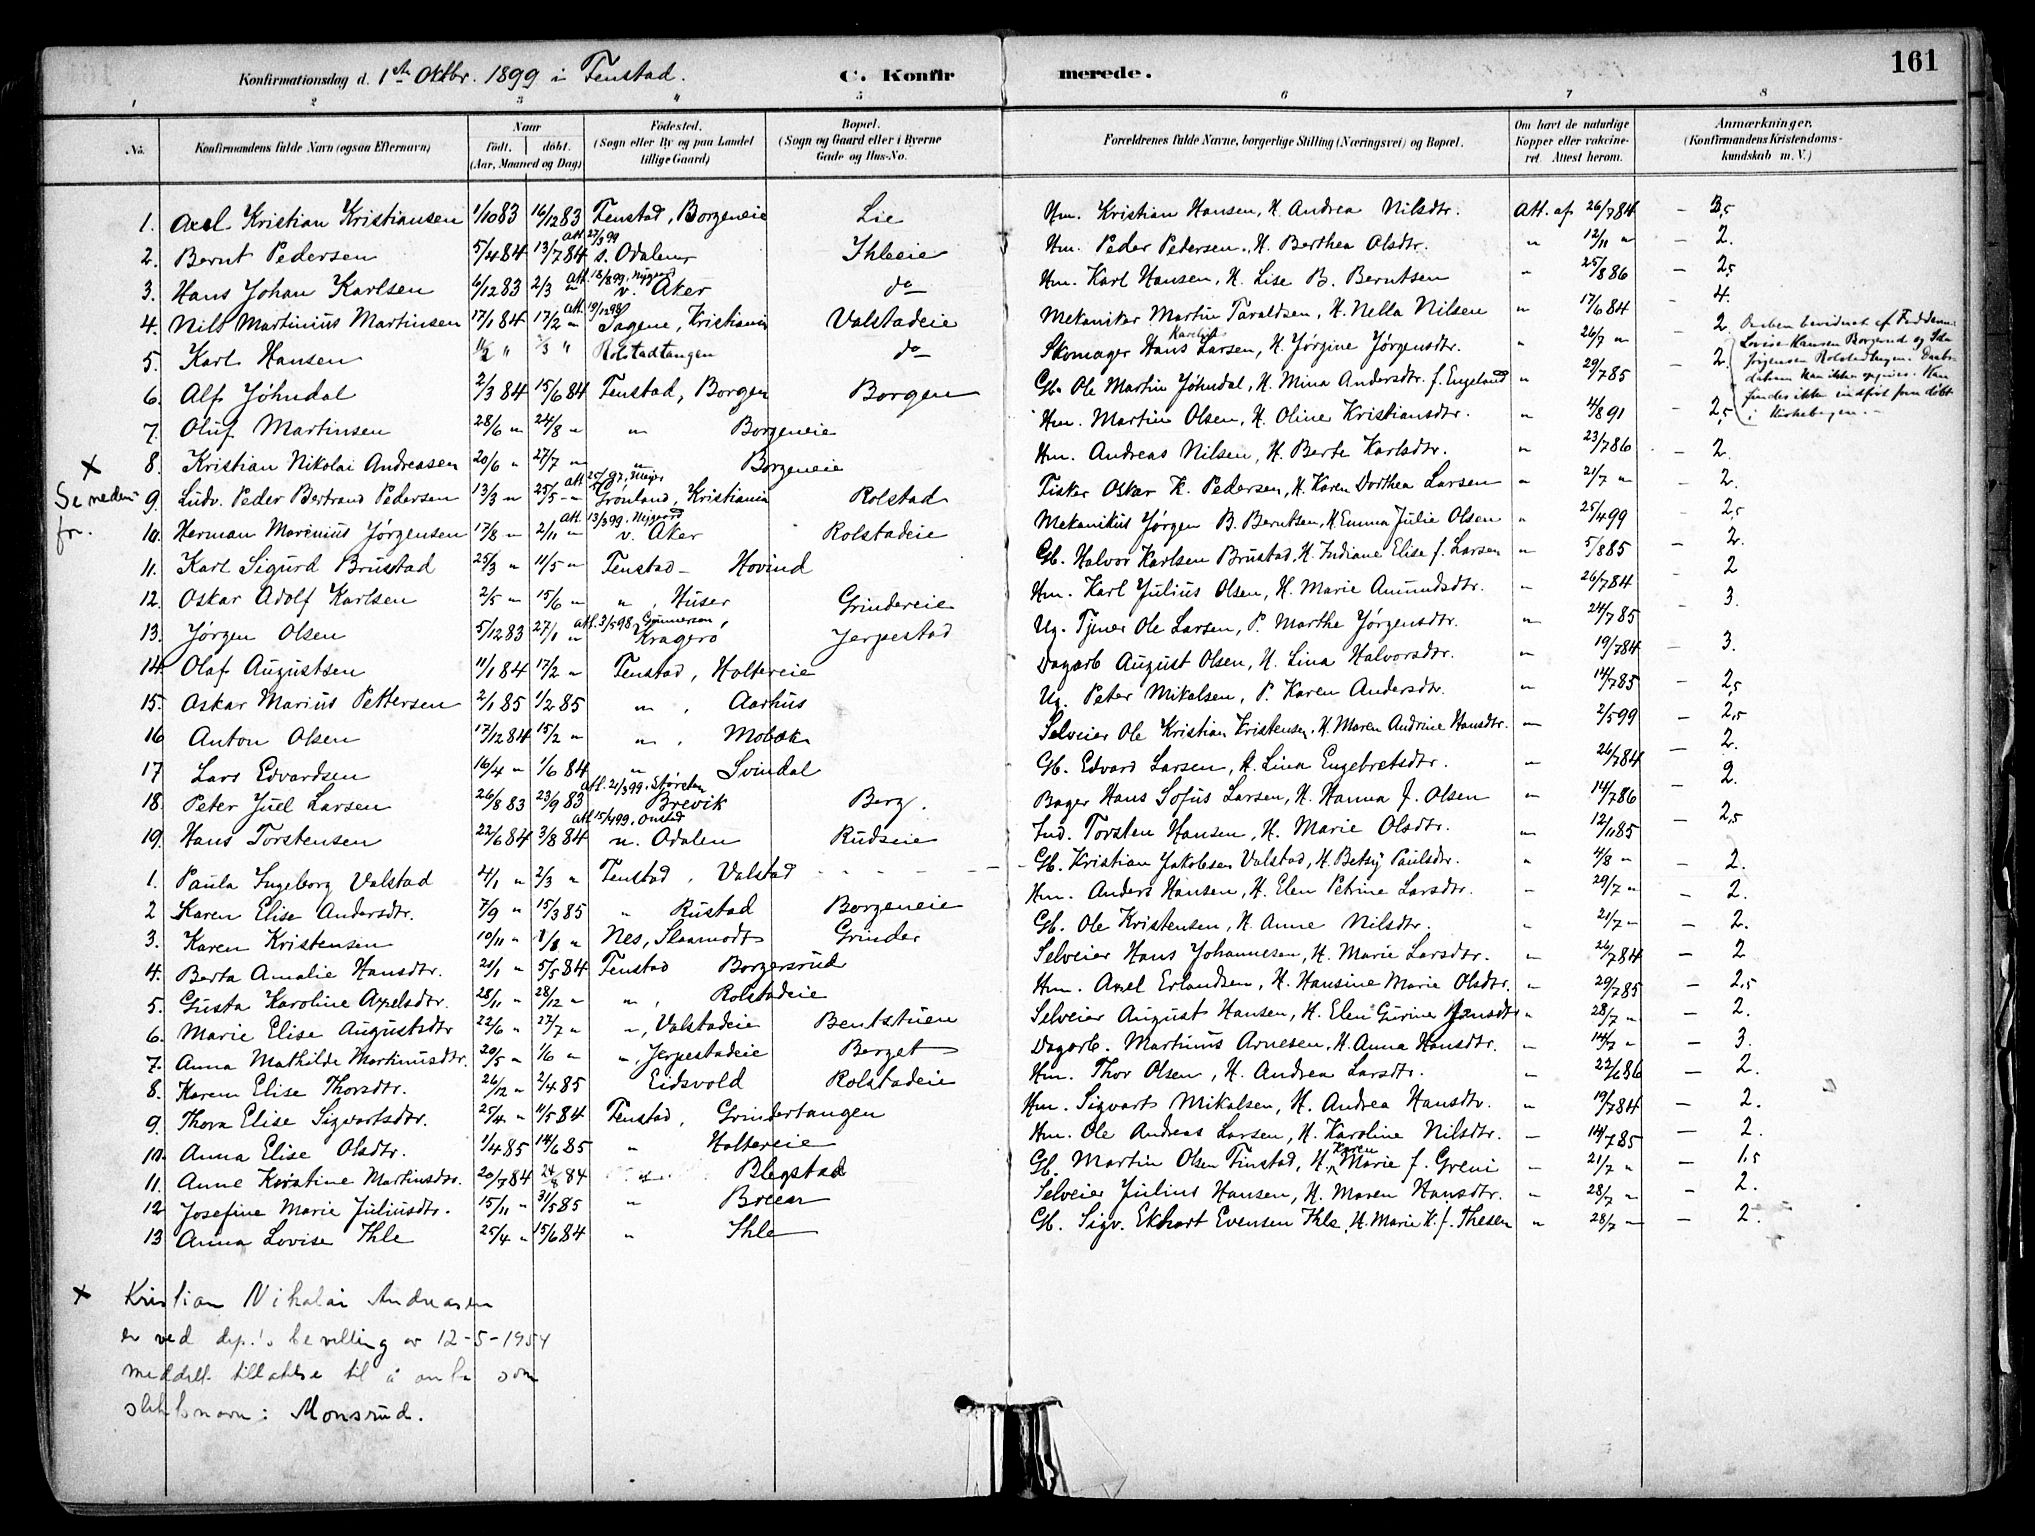 161
Konfirmationsdag d. 1ste Oktbr. 1899 i Fenstad. C. Konfirmerede.
1 2 3 4 5 6 7 8
No. Konfirmandens fulde Navn (ogsaa Efternavn) Naar født. døbt. (Aar, Maaned og Dag) Fødested. (Sogn eller By og paa Landet tillige Gaard) Bopæl. (Sogn og Gaard eller i Byerne Gade og Hus-No. Forældrenes fulde Navne, borgerlige Stilling (Næringsvei) og Bopæl. Om havt de naturlige Kopper eller vakcineret. Attest herom. Anmærkninger. (Konfirmandens Kristendomskundskab m. V.)
1. Axel Kristian Kristiansen 1/10 83 16/12 83 Fenstad, Borgeneie Lie Hm. Kristian Hansen, H. Andrea Nilsdtr. Att. af 26/7 84 – 3,5
2. Bernt Pedersen 5/4 84 13/7 84 att. 27/3 99 s. Odalen Ihleeie Hm. Peder Pedersen, H. Berthea Olsdtr. " 12/11 " – 2.
3. Hans Johan Karlsen 6/12 83 2/3 " att. 18/8 99, Nygaard v. Aker do Hm. Karl Hansen, H. Lise B. Berntsen " 25/8 86 – 2,5
4. Nils Martinius Martinsen 17/1 84 17/2 " att. 19/12 98 Sagene, Kristiania Valstadeie Mekaniker Martin Taraldsen, H. Nella Nilsen " 17/6 84 – 4.
5. Karl Hansen 11/2 " 2/3 " Rolstadtangen do Skomager Hans Karelius Larsen, H. Jørgine Jørgensdtr. " 26/7 " – 2
6. Alf Jøhndal 2/3 84 15/6 84 Fenstad, Borgen Borgen Gb. Ole Martin Jøhndal, H. Mina Andersdtr. f. Engeland " 29/7 85 – 2
7. Oluf Martinsen 28/6 " 24/8 " " Borgeneie Hm. Martin Olsen, H. Oline Kristiansdtr. " 4/8 91 – 2,5
x 8. Kristian Nikolai Andreasen 20/6 " 27/7 " " Borgeneie Hm. Andreas Nilsen, H. Berte Karlsdtr. " 23/7 86 – 2.
Se neden-
for.
9. Ludv. Peder Bertrand Pedersen 13/3 " 25/5 " Grønland, Kristiania Rolstad Fisker Oskar K. Pedersen, H. Karen Dorthea Larsen " 21/7 " – 2.
10. Herman Marinius Jørgensen 17/8 " 2/11 " att. 13/3 99, Nygaard v. Aker Rolstadeie Mekanikus Jørgen B. Berntsen, H. Emma Julie Olsen " 25/4 99 – 2,5
11. Karl Sigurd Brustad 25/3 " 11/5 " Fenstad – Hovind Gb. Halvor Karlsen Brustad, H. Indiane Elise f. Larsen " 5/8 85 – 2.
12. Oskar Adolf Karlsen 2/5 " 15/6 " " , Huser Grindereie Hm. Karl Julius Olsen, H. Marie Amundsdtr. " 26/7 84 – 2
13. Jørgen Olsen 5/12 83 27/1 " att. 3/5 98, Gunnersen, Kragerø Jerpestad Ug. Tjener Ole Larsen, P. Marthe Jørgensdtr. " 24/7 85 – 3.
14. Olaf Augustsen 11/1 84 17/2 " Fenstad, Holtereie Dagarb August Olsen, H. Lina Halvorsdtr. " 19/7 84 – 3.
15. Oskar Marius Pettersen 2/1 85 1/2 85 " , Aarhus Ug. Peter Mikalsen, P. Karen Andersdtr. " 14/7 85 – 2,5
16 Anton Olsen 17/12 84 15/2 " " , Mobæk Selveier Ole Kristian Kristensen, H. Maren Andrine Hansdtr. " 2/5 99 – 2,5
17 Lars Edvardsen 16/4 " 1/6 84 " Svindal Gb. Edvard Larsen, H. Lina Engebretsdtr. " 26/7 84 – 2.
18. Peter Juel Larsen 26/8 83 23/9 83 att. 21/3 99, Størsten Brevik Berg. Bager Hans Sofus Larsen, H. Hanna J. Olsen " 14/7 86 – 2.
19. Hans Torstensen 22/6 84 3/8 84 att 15/4 99, Onstad n. Odalen Rudseie Ind. Torsten Hansen, H. Marie Olsdtr. " 12/11 85 – 2,5
1. Paula Ingeborg Valstad 4/1 " 2/3 " Fenstad, Valstad – – – – – Gb. Kristian Jakobsen Valstad, H. Betsy Paulsdtr. " 4/8 " – 2.
2 Karen Elise Andersdtr. 7/9 " 15/3 85 " Rustad Borgeneie Hm. Anders Hansen, H. Elen Petrine Larsdtr. " 29/7 " – 2.
3. Karen Kristensen 10/11 " 1/8 " Nes, Slaamodt Grinder Gb. Ole Kristensen, H. Anne Nilsdtr. " 21/7 " – 2.
4. Berta Amalie Hansdtr. 21/1 " 5/5 84 Fenstad Borgersrud Selveier Hans Johannesen, H. Marie Larsdtr. " 26/7 84 – 2
5. Gusta Karoline Axelsdtr. 28/11 " 28/12 " " , Rolstadeie Hm. Axel Erlandsen, H. Hansine Marie Olsdtr. " 29/7 85 – 2,5
6. Marie Elise Augustsdtr 22/6 " 27/7 " ", Valstadeie Bentstuen Selveier August Hansen, H. Elen Gurine Jensdtr " 28/7 " – 2.
7. Anna Mathilde Martinusdtr. 20/5 " 1/6 " ", Jerpestadeie Berget Dagarb. Martinus Arnesen, H. Anna Hansdtr. " 14/7 " – 3.
8. Karen Elise Thorsdtr. 26/12 " 2/4 85 Eidsvold Rolstadeie Hm. Thor Olsen, H. Andrea Larsdtr. " 22/6 86 – 2.
9. Thora Elise Sigvartsdtr. 25/4 " 11/5 84 Fenstad, Grindertangen Hm. Sigvart Mikalsen, H. Andrea Hansdtr. " 19/7 84 – 2.
10. Anna Elise Olsdtr. 1/4 85 14/6 85 " Holtereie Hm. Ole Andreas Larsen, H. Karoline Nilsdtr. – 14/7 85 – 2.
11. Anne Kirstine Martinsdtr. 20/7 84 24/8 84 " Blegstad Gb. Martin Olsen Finstad, H. Karen Marie f. Greni " 21/7 " – 1,5
12 Josefine Marie Juliusdtr. 15/11 " 31/5 85 " Breen Selveier Julius Hansen, H. Maren Hansdtr. " 28/7 " – 2.
13 Anna Lovise Ihle 25/4 " 15/6 84 " Ihle Gb. Sigv. Ekhart Evensen Ihle, H. Marie K. f. Thesen " 28/7 " – 2.
Daaben bevidnet af Fadderne
Lovise Hansen Borgerud og Ida
Jørgensen Rolstadtangen. Daabs-
datum kan ikke opgives. Han
findes ikke indført som døbt
i Kirkebogen. –
x Kristian Nikolai Andreasen
er ved dep.'s bevilling av 12-5-1954
meddelt tillatelse til å anta som
slektsnavn: Monsrud.